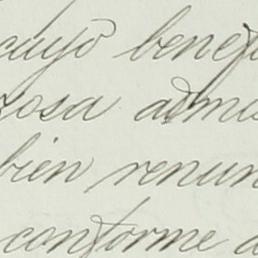 cuyo benef
rosa admi
bien renun
conforme a